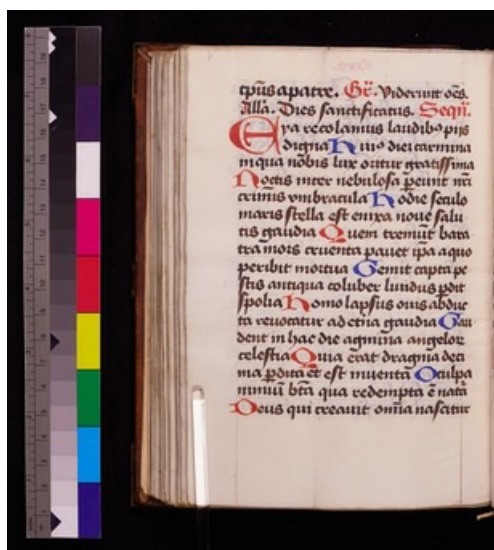 tp̄us apatre. Gr̄. Viderunt oēs.
Alla. Dies sanctificatus. Seqū.
Eya recolamus laudib9 pijs
digna Huiꝰ diei carmina
inqua nobis lux oritur gratissima
Noctis inter nebulosa pereunt nr̄i
crimīs vmbracula Hodie seculo
maris stella est enixa noue salu
tis gaudia Quem tremūt bara
tra mors cruenta pauet ip̄a a quo
peribit mortua Gemit capta pe
stis antiqua coluber liuidus p̄dit
spolia Homo lapsus ouis abduc
ta reuocatur ad et̄na gaudia Gau
dent in hac die agmina angelor̄
celestia Quia erat dragma deci
ma p̄dita et est inuenta O culpa
nimiū bt̄a qua redempta ē nat̄a
Deus qui creauit om̄ia nascitur